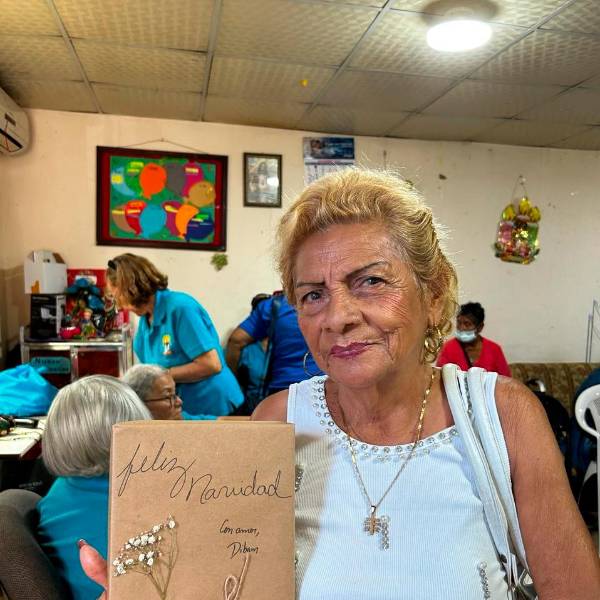 feliz
Navidad
Con amor,
Dibam